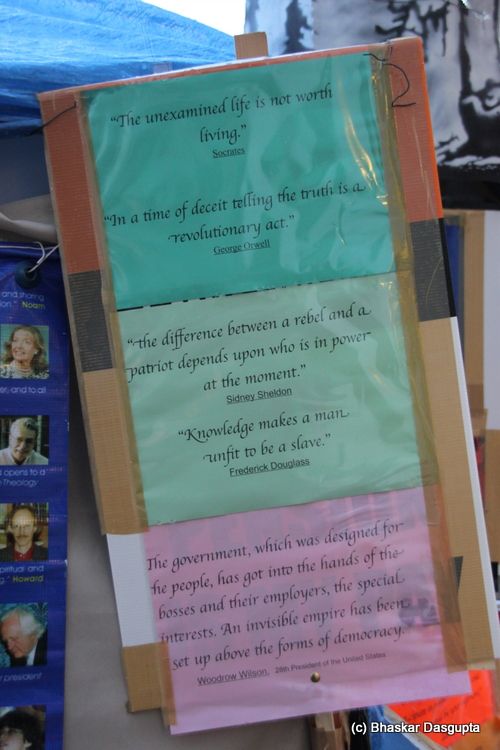 “The unexamined life is not worth
living.”
Socrates
“In a time of deceit telling the truth is a
revolutionary act.”
George Orwell
“the difference between a rebel and a
patriot depends upon who is in power
at the moment.”
Sidney Sheldon
“Knowledge makes a man
unfit to be a slave.”
Frederick Douglass
The government, which was designed for
he people, has got into the hands of the
bosses and their employers, the special
interests. An invisible empire has been
set up above the forms of democracy.
Woodrow Wilson, 28th President of the United States
and sharing
Noam
er, and to all
opens to a
Theology
piritual and
Howard
president
(c) Bhaskar Dasgupta